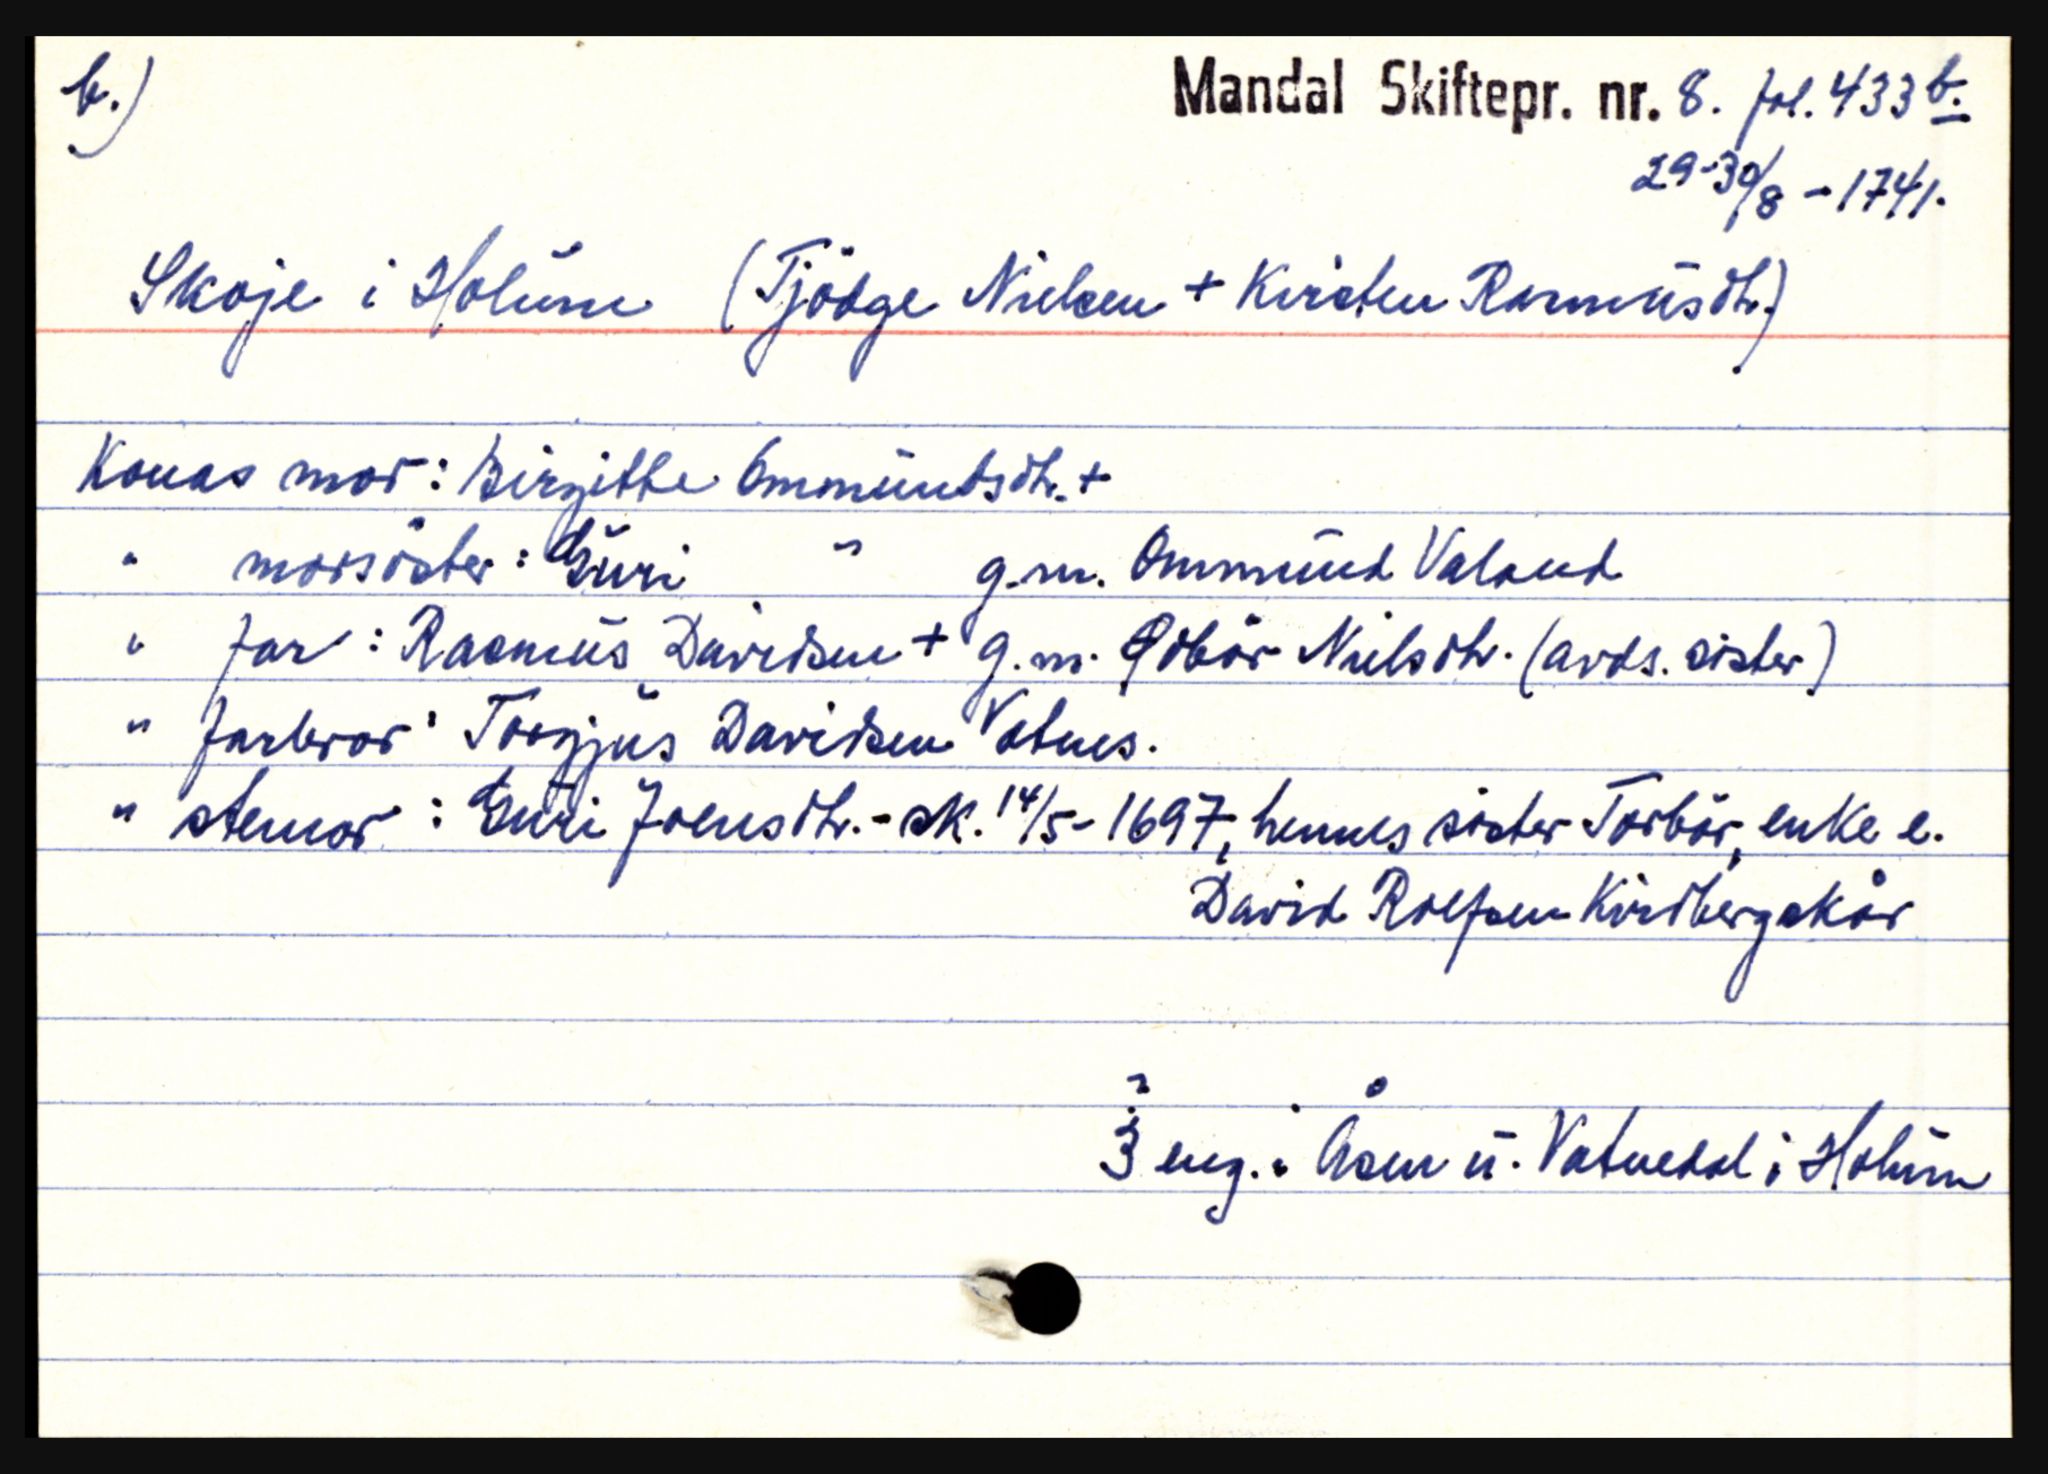 b.)
Mandal Skiftepr. nr. 8. fol. 433 b.
29-30/8 - 1741.
Skoje i Holum (Tjödge Nielsen + Kirsten Rasmusdtr.)
Konas mor: Birgitte Ommundsdtr. +
" morsöster: Guri " g.m. Ommund Valand
" far: Rasmus Davidsen + g.m. Odbör Nielsdtr. (avds. söster)
" farbror: Torgjus Davidsen Vatnes.
" stemor: Guri Joensdtr. - sk. 14/5 - 1697, hennes söster Torbör, enke e.
David Roefsen Kirdbergskår
3 eng. i Åsen u. Vatnedal i Holum